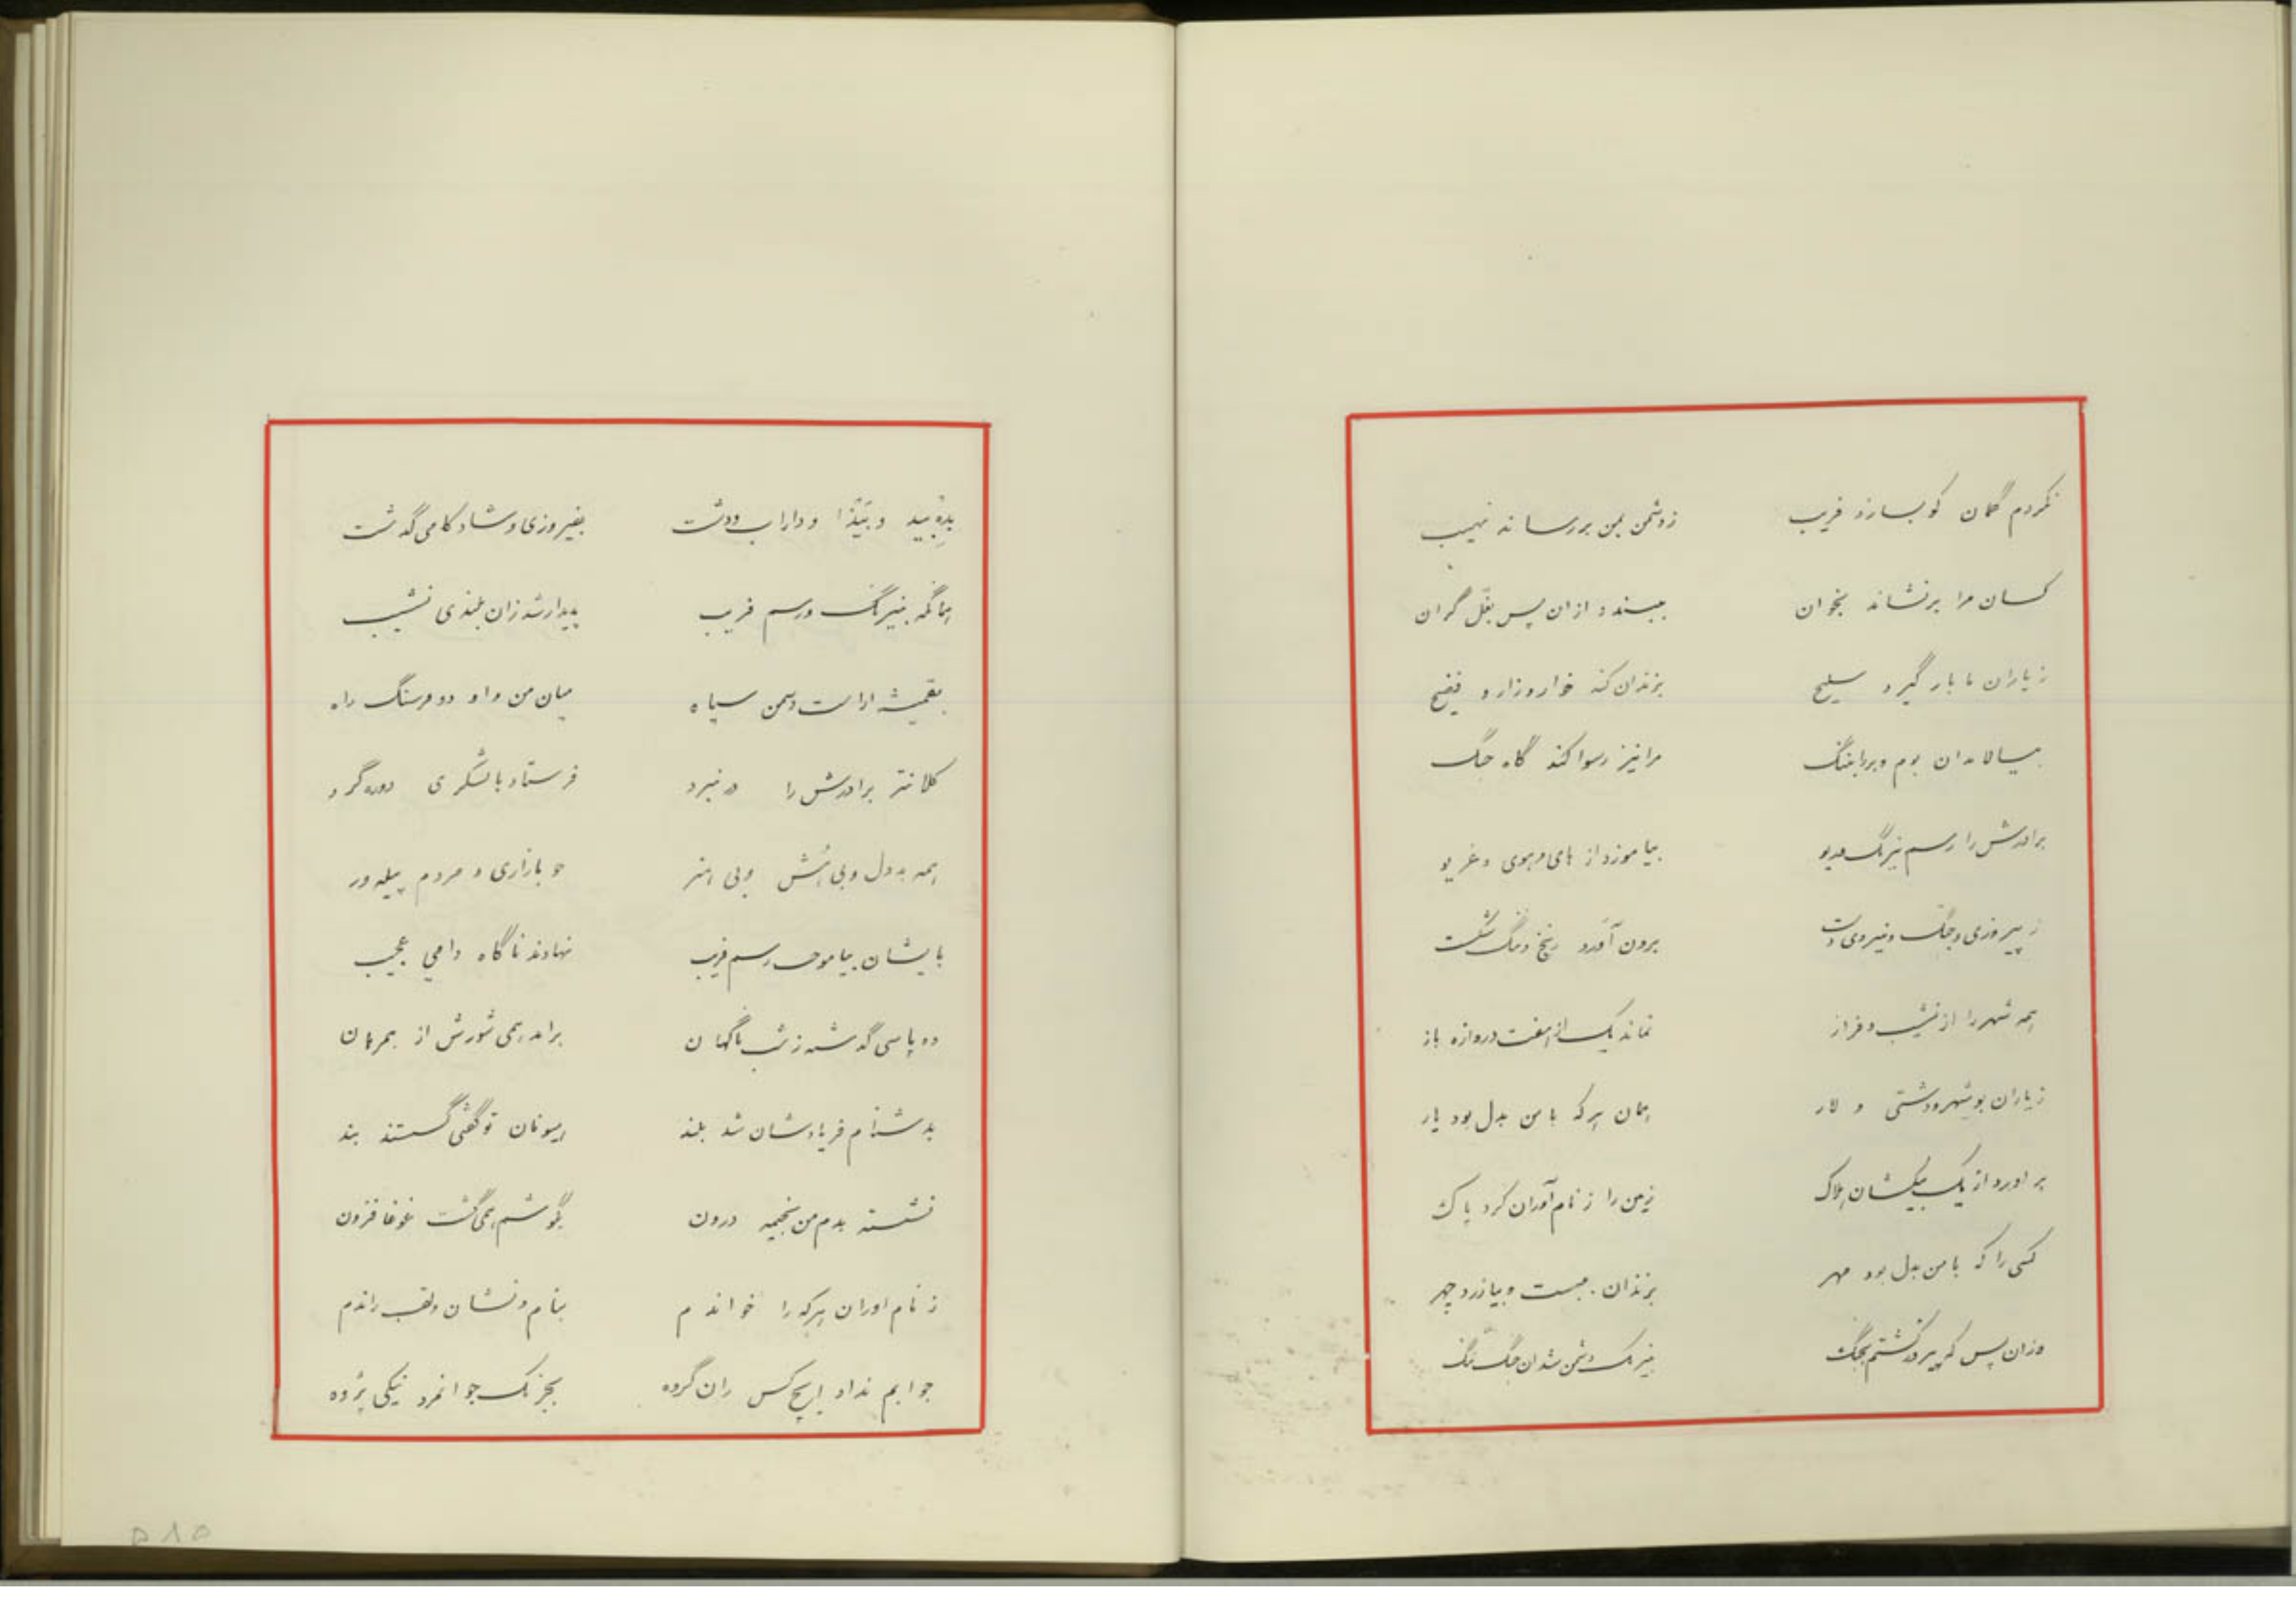 نکردم گمان کو بسازد فریب    ز دشمن بمن بر رساند نهیب
کسان مرا برنشاند بخوان    ببندد ازان پس بغل گران
ز یاران ما بار گیرد سلیح    بزندان کند خوار و زار و فضیح
بسالا مدان بوم و بر    مرا نیز رسوا کند گاه جنگ
برادرش را رسم نیرنگ و ریو    بیاموزد از های و هوی و غریو
ز پیروزی و جنگ و نیروی دست    برون آورد رنج و ننگ شکست
همه شهر را از نشیب و فراز    نماند یک از هفت دروازه باز
ز یاران بوشهر و دشتی و لار    همان هر که با من بدل بود یار
براورد از یک بیکشان هلاک    زمین را ز نام آوران کرد پاک
کسی را که با من بدل بود مهر    بزندان ببست و بیازرد چهر
وزان پس که پیروز گشتم بجنگ    نیرنگ دشمن شد ان جنگ ننگ
بده بید و و داراب و دشت    بفیروزی و شادکامی گذشت
همانگه به نیرنگ و رسم فریب    پدیدار شد زان بلندی نشیب
بقمیشه اراست دشمن سپاه    میان من و او دو فرسنگ راه
کلانتر برادرش را در نبرد    فرستاد با لشکری دوره گرد
همه بد دل و بی منش و بی هنر    چو بازاری و مردم پیله ور
بایشان بیاموخت رسم فریب    نهادند ناگاه دامی عجیب
دو پاسی گذشته ز شب ناگهان    برامد همی شورش از همرهان
بدشنام فریادشان شد بلند    هیونان تو گفتی گسستند بند
نشسته بدم من بخیمه درون    بگوشم همی گشت غوغا فزون
ز نام اوران هر که را خواندم    بنام و نشان و لقب راندم
جوابم نداد هیچ کس زان گروه    بجز یک جوانمرد نیکی پژوه
۵۸۵